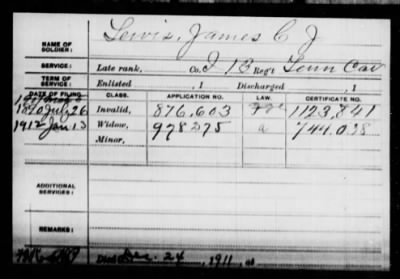 Lewis, James C J
NAME OF SOLDIER:
SERVICE: Late rank, Co. I 13 Reg't Tenn Cav
TERM OF SERVICE: Enlisted , 1 Discharged , 1
DATE OF FILING. CLASS. APPLICATION NO. LAW. CERTIFICATE NO.
1890 July 26 Invalid, 876,603 1123,841
1912 Jan 13 Widow, 978275 a 744.038
Minor,
ADDITIONAL SERVICES:
REMARKS:
Died Dec. 24, 1911, at